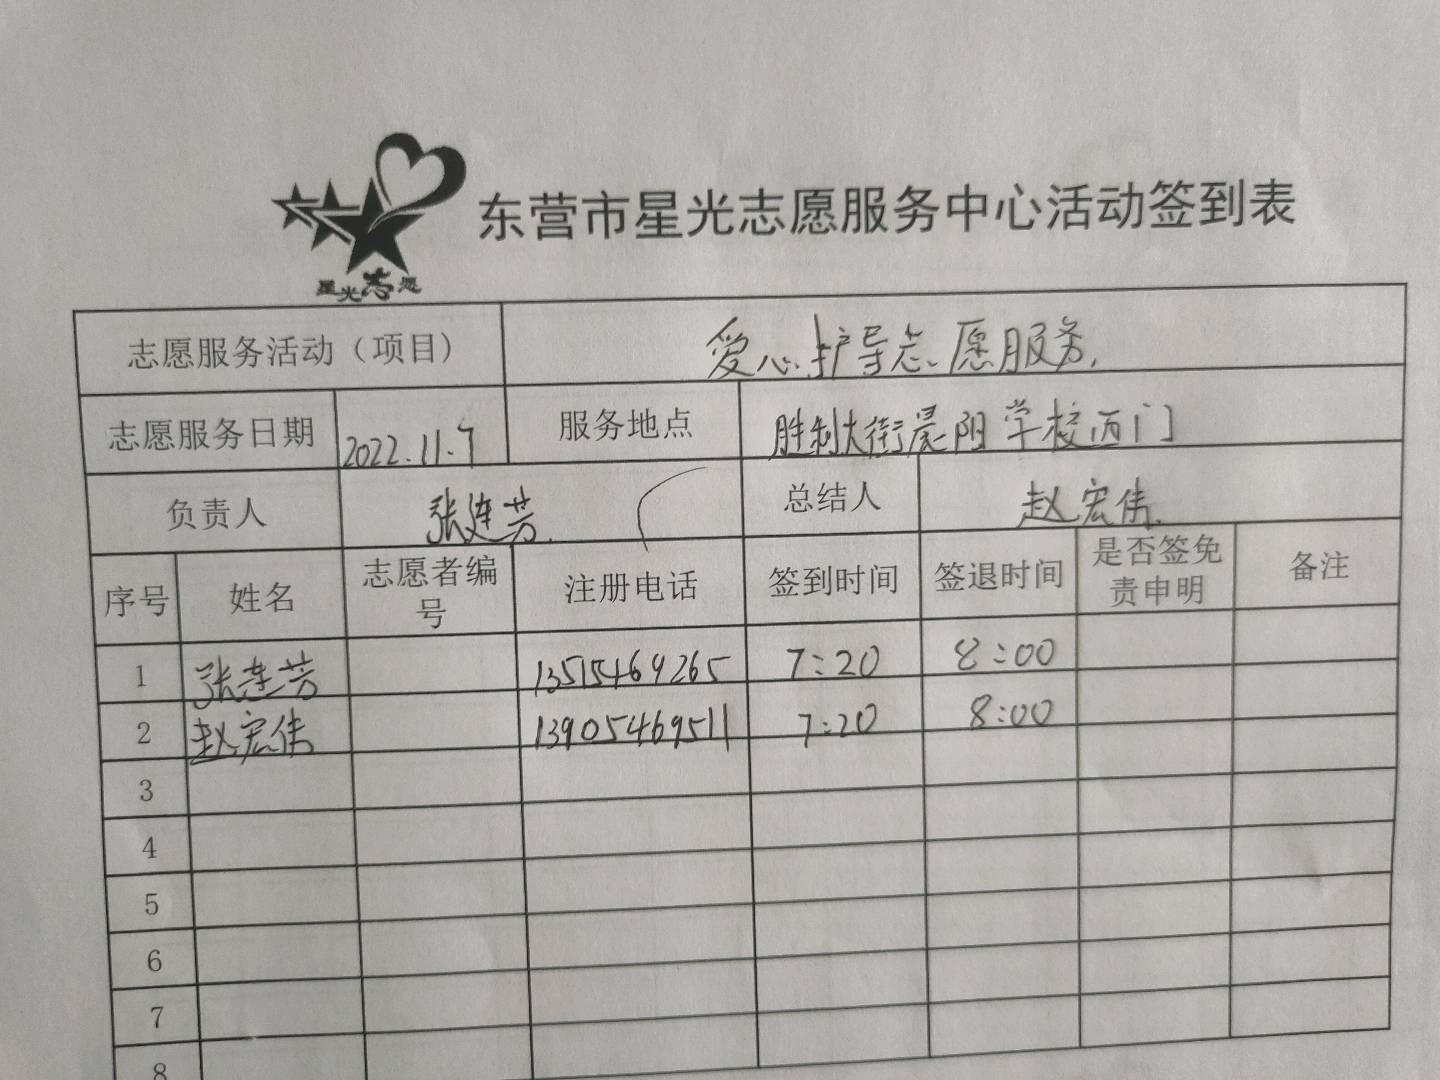 东营市星光志愿服务中心活动签到表
星光志愿
志愿服务活动（项目） 爱心护导志愿服务.
志愿服务日期 2022.11.7 服务地点 胜利大街晨阳学校西门
负责人 张连芳. 总结人 赵宏伟.
序号 姓名 志愿者编号 注册电话 签到时间 签退时间 是否签免责申明 备注
1 张连芳 13515469265 7:20 8:00
2 赵宏伟 13905469511 7:20 8:00
3
4
5
6
7
8